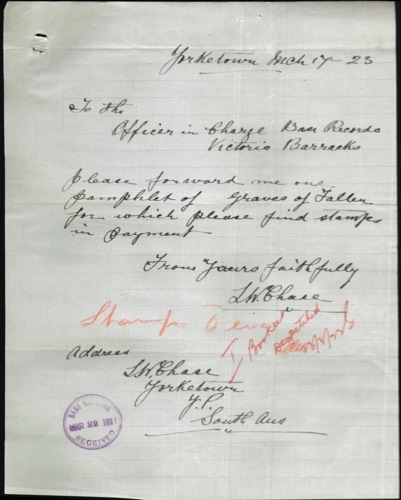 Yorketown Mch 17 - 23
To the
Officer in Charge Base Records
Victoria Barracks
Please forward me one
Pamphlet of Graves of Fallen
for which please find stamps
in payment
From Yours faithfully
L.W. Chase
Stamps
1 Booklet
despatched
Address
L.W. Chase
Yorketown
Y.P.
South Aus
BASE
MAR 22
RECEIVED